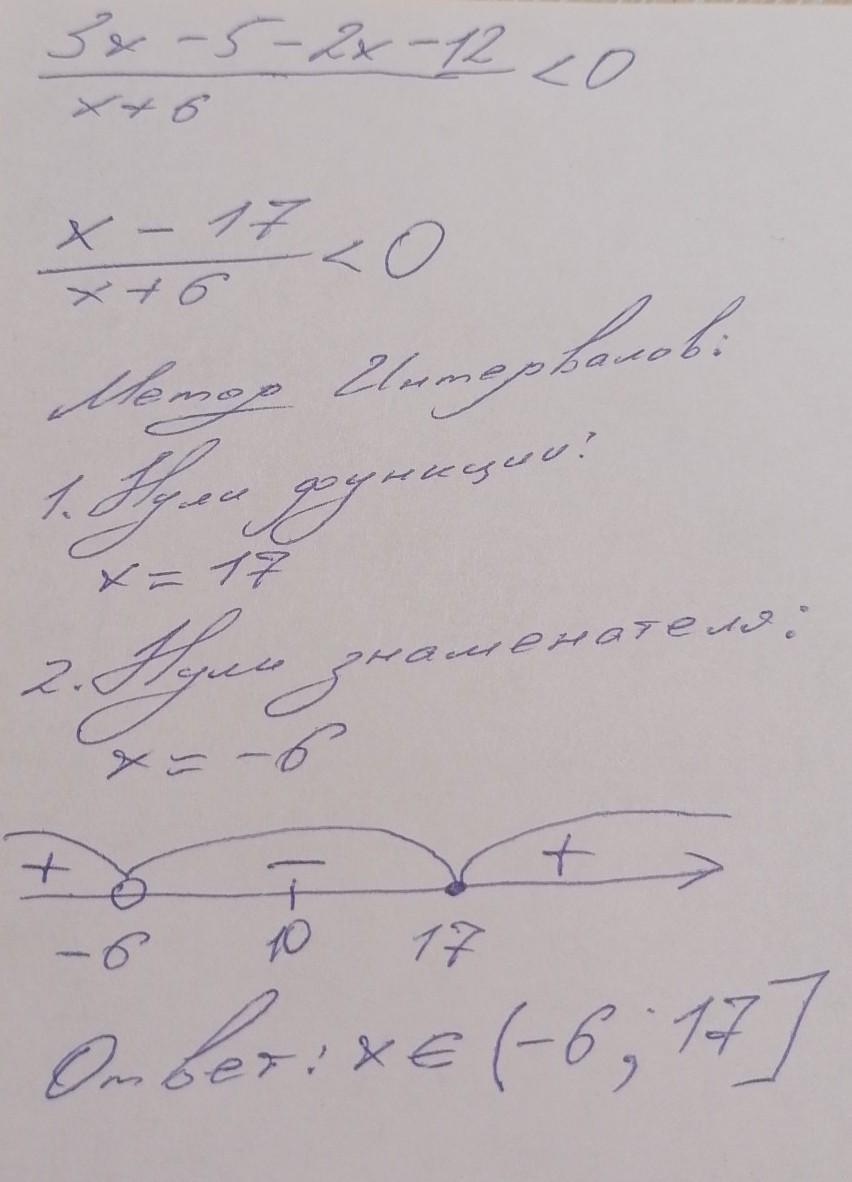 3x - 5 - 2x - 12 / x + 6 < 0
x - 17 / x + 6 < 0
Метод Интервалов:
1. Нули функции:
x = 17
2. Нули знаменателя:
x = -6
+ − +
-6 10 17
Ответ: x ∈ (-6; 17]